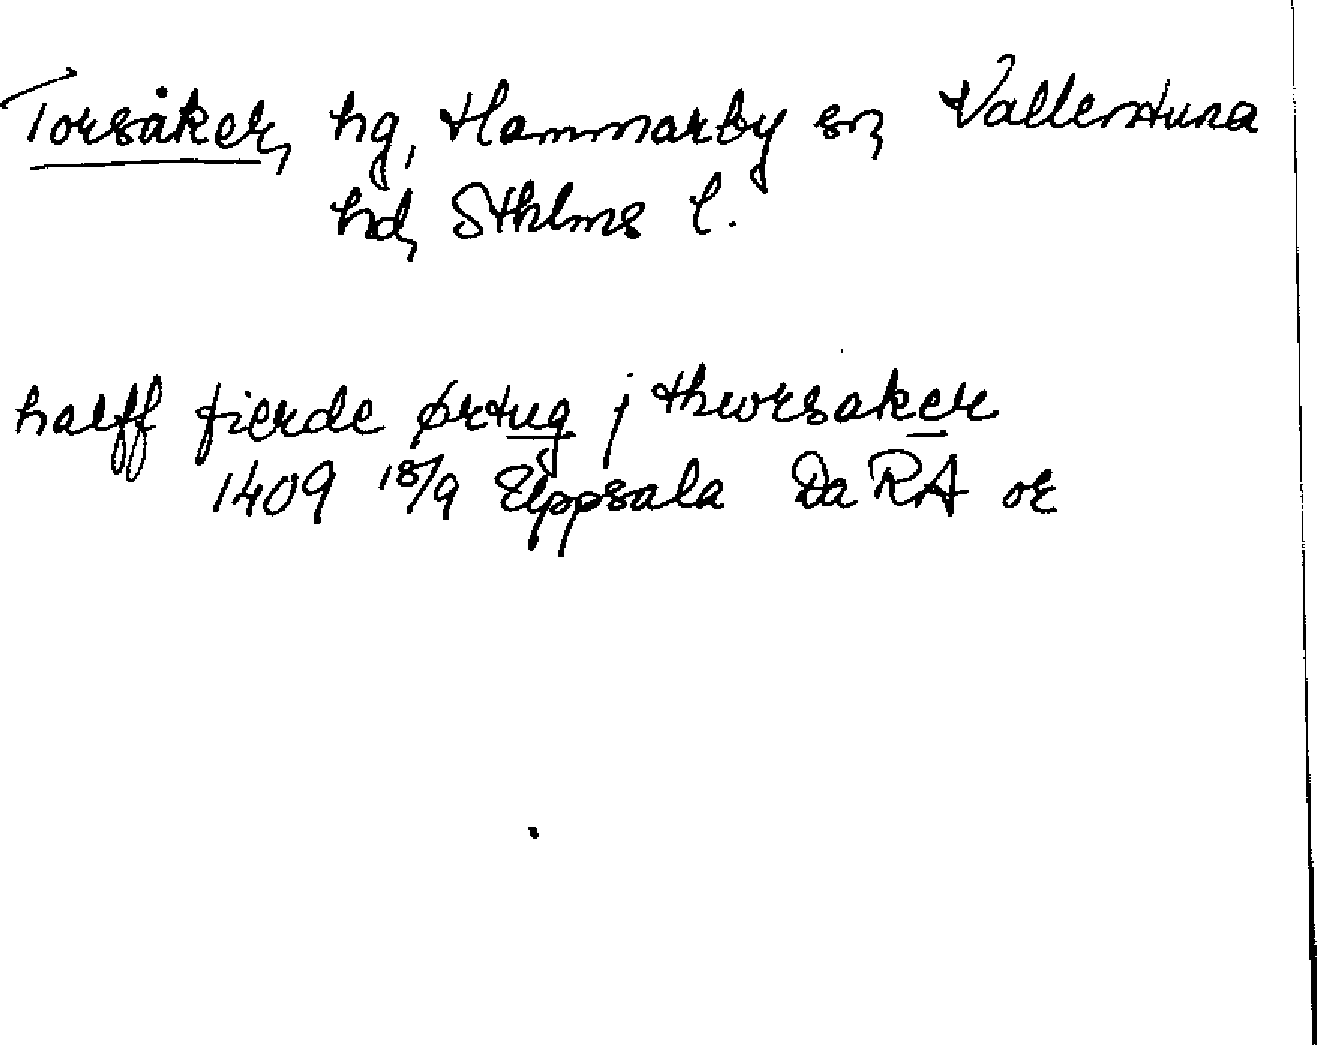 Torsåker, hg, Hammarby sn, Vallentuna
hd, Sthlms l.
halff fierde ørtug j thorsaker
1409 18/9 Uppsala Da RA or